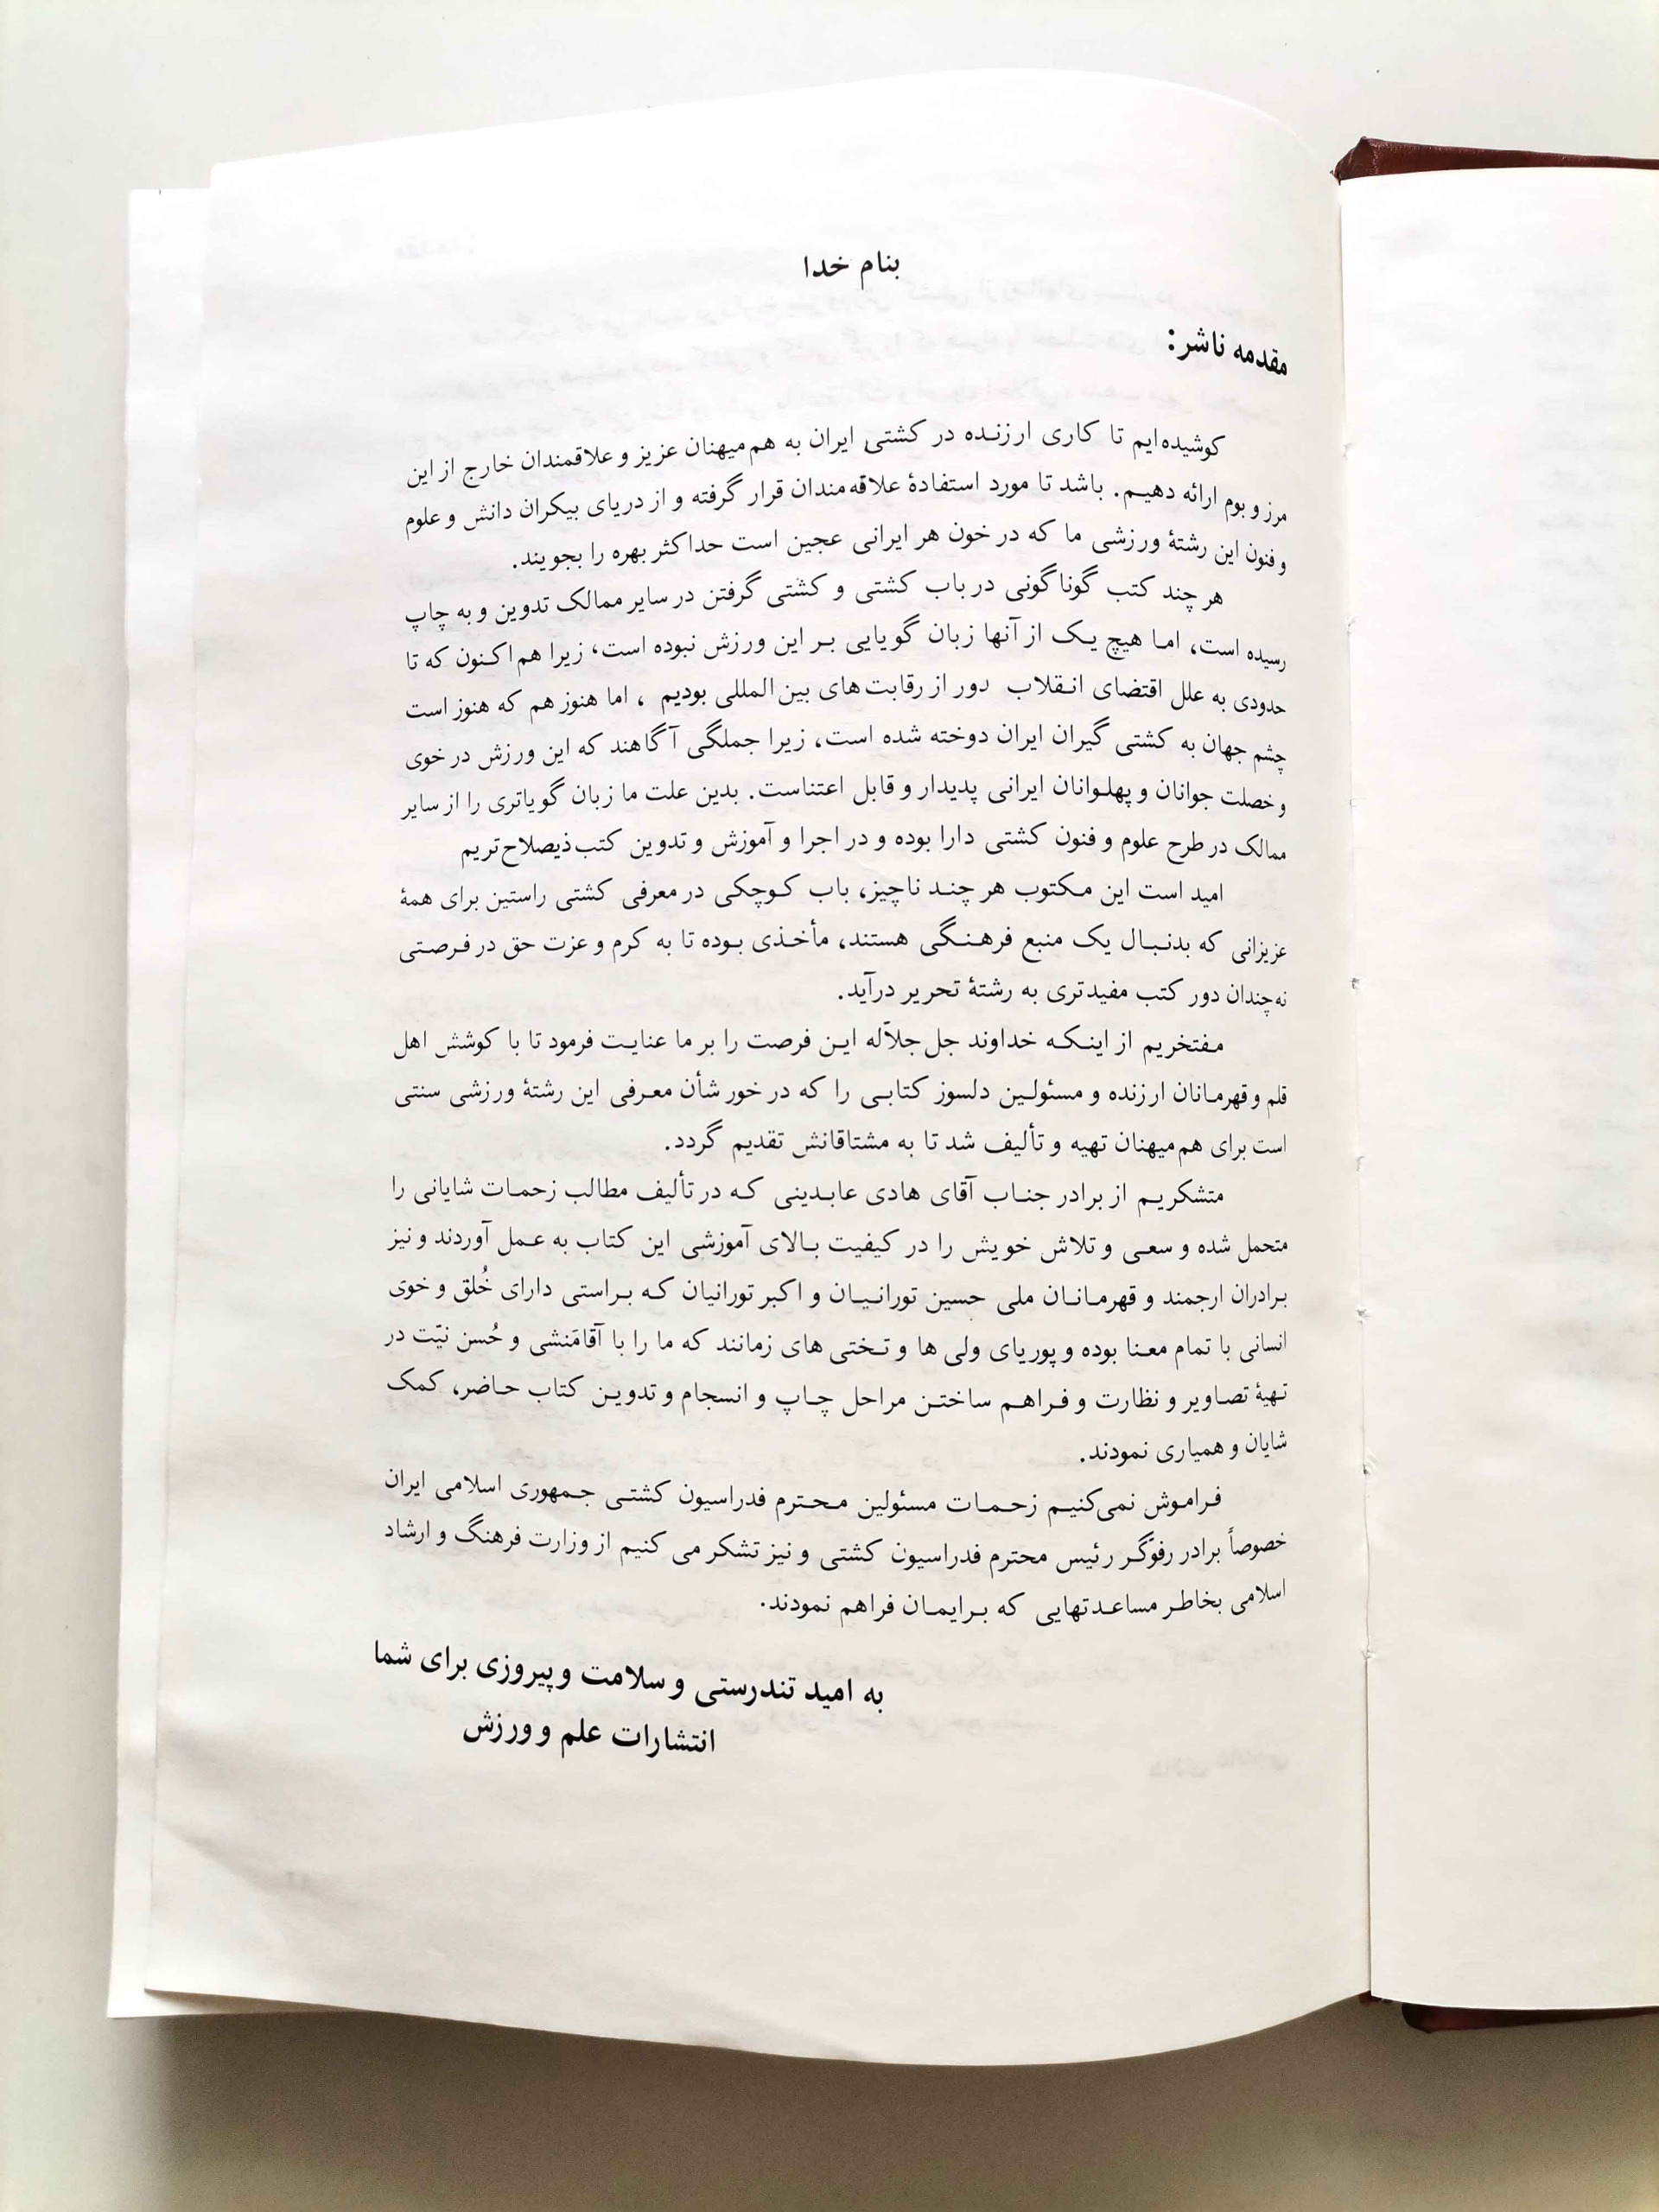 بنام خدا
مقدمه ناشر:
کوشیده‌ایم تا کاری ارزنده در کشتی ایران به هم‌میهنان عزیز و علاقمندان خارج از این
مرز و بوم ارائه دهیم. باشد تا مورد استفادهٔ علاقه‌مندان قرار گرفته و از دریای بیکران دانش و علوم
و فنون این رشتهٔ ورزشی ما که در خون هر ایرانی عجین است حداکثر بهره را بجویند.
هر چند کتب گوناگونی در باب کشتی و کشتی گرفتن در سایر ممالک تدوین و به چاپ
رسیده است، اما هیچ یک از آنها زبان گویایی بر این ورزش نبوده است، زیرا هم‌اکنون که تا
حدودی به علل اقتضای انقلاب دور از رقابت‌های بین‌المللی بودیم ، اما هنوز هم که هنوز است
چشم جهان به کشتی گیران ایران دوخته شده است، زیرا جملگی آگاهند که این ورزش در خوی
و خصلت جوانان و پهلوانان ایرانی پدیدار و قابل اعتناست. بدین علت ما زبان گویاتری را از سایر
ممالک در طرح علوم و فنون کشتی دارا بوده و در اجرا و آموزش و تدوین کتب ذیصلاح‌تریم
امید است این مکتوب هر چند ناچیز، باب کوچکی در معرفی کشتی راستین برای همهٔ
عزیزانی که بدنبال یک منبع فرهنگی هستند، مأخذی بوده تا به کرم و عزت حق در فرصتی
نه‌چندان دور کتب مفیدتری به رشتهٔ تحریر درآید.
مفتخریم از اینکه خداوند جل‌جلآله این فرصت را بر ما عنایت فرمود تا با کوشش اهل
قلم و قهرمانان ارزنده و مسئولین دلسوز کتابی را که در خور شأن معرفی این رشتهٔ ورزشی سنتی
است برای هم‌میهنان تهیه و تألیف شد تا به مشتاقانش تقدیم گردد.
متشکریم از برادر جناب آقای هادی عابدینی که در تألیف مطالب زحمات شایانی را
متحمل شده و سعی و تلاش خویش را در کیفیت بالای آموزشی این کتاب به عمل آوردند و نیز
برادران ارجمند و قهرمانان ملی حسین تورانیان و اکبر تورانیان که براستی دارای خُلق و خوی
انسانی با تمام معنا بوده و پوریای ولی ها و تختی های زمانند که ما را با آقامَنشی و حُسن نیّت در
تهیهٔ تصاویر و نظارت و فراهم ساختن مراحل چاپ و انسجام و تدوین کتاب حاضر، کمک
شایان و همیاری نمودند.
فراموش نمی‌کنیم زحمات مسئولین محترم فدراسیون کشتی جمهوری اسلامی ایران
خصوصاً برادر رفوّگر رئیس محترم فدراسیون کشتی و نیز تشکر می کنیم از وزارت فرهنگ و ارشاد
اسلامی بخاطر مساعدتهایی که برایمان فراهم نمودند.
به امید تندرستی و سلامت و پیروزی برای شما
انتشارات علم و ورزش